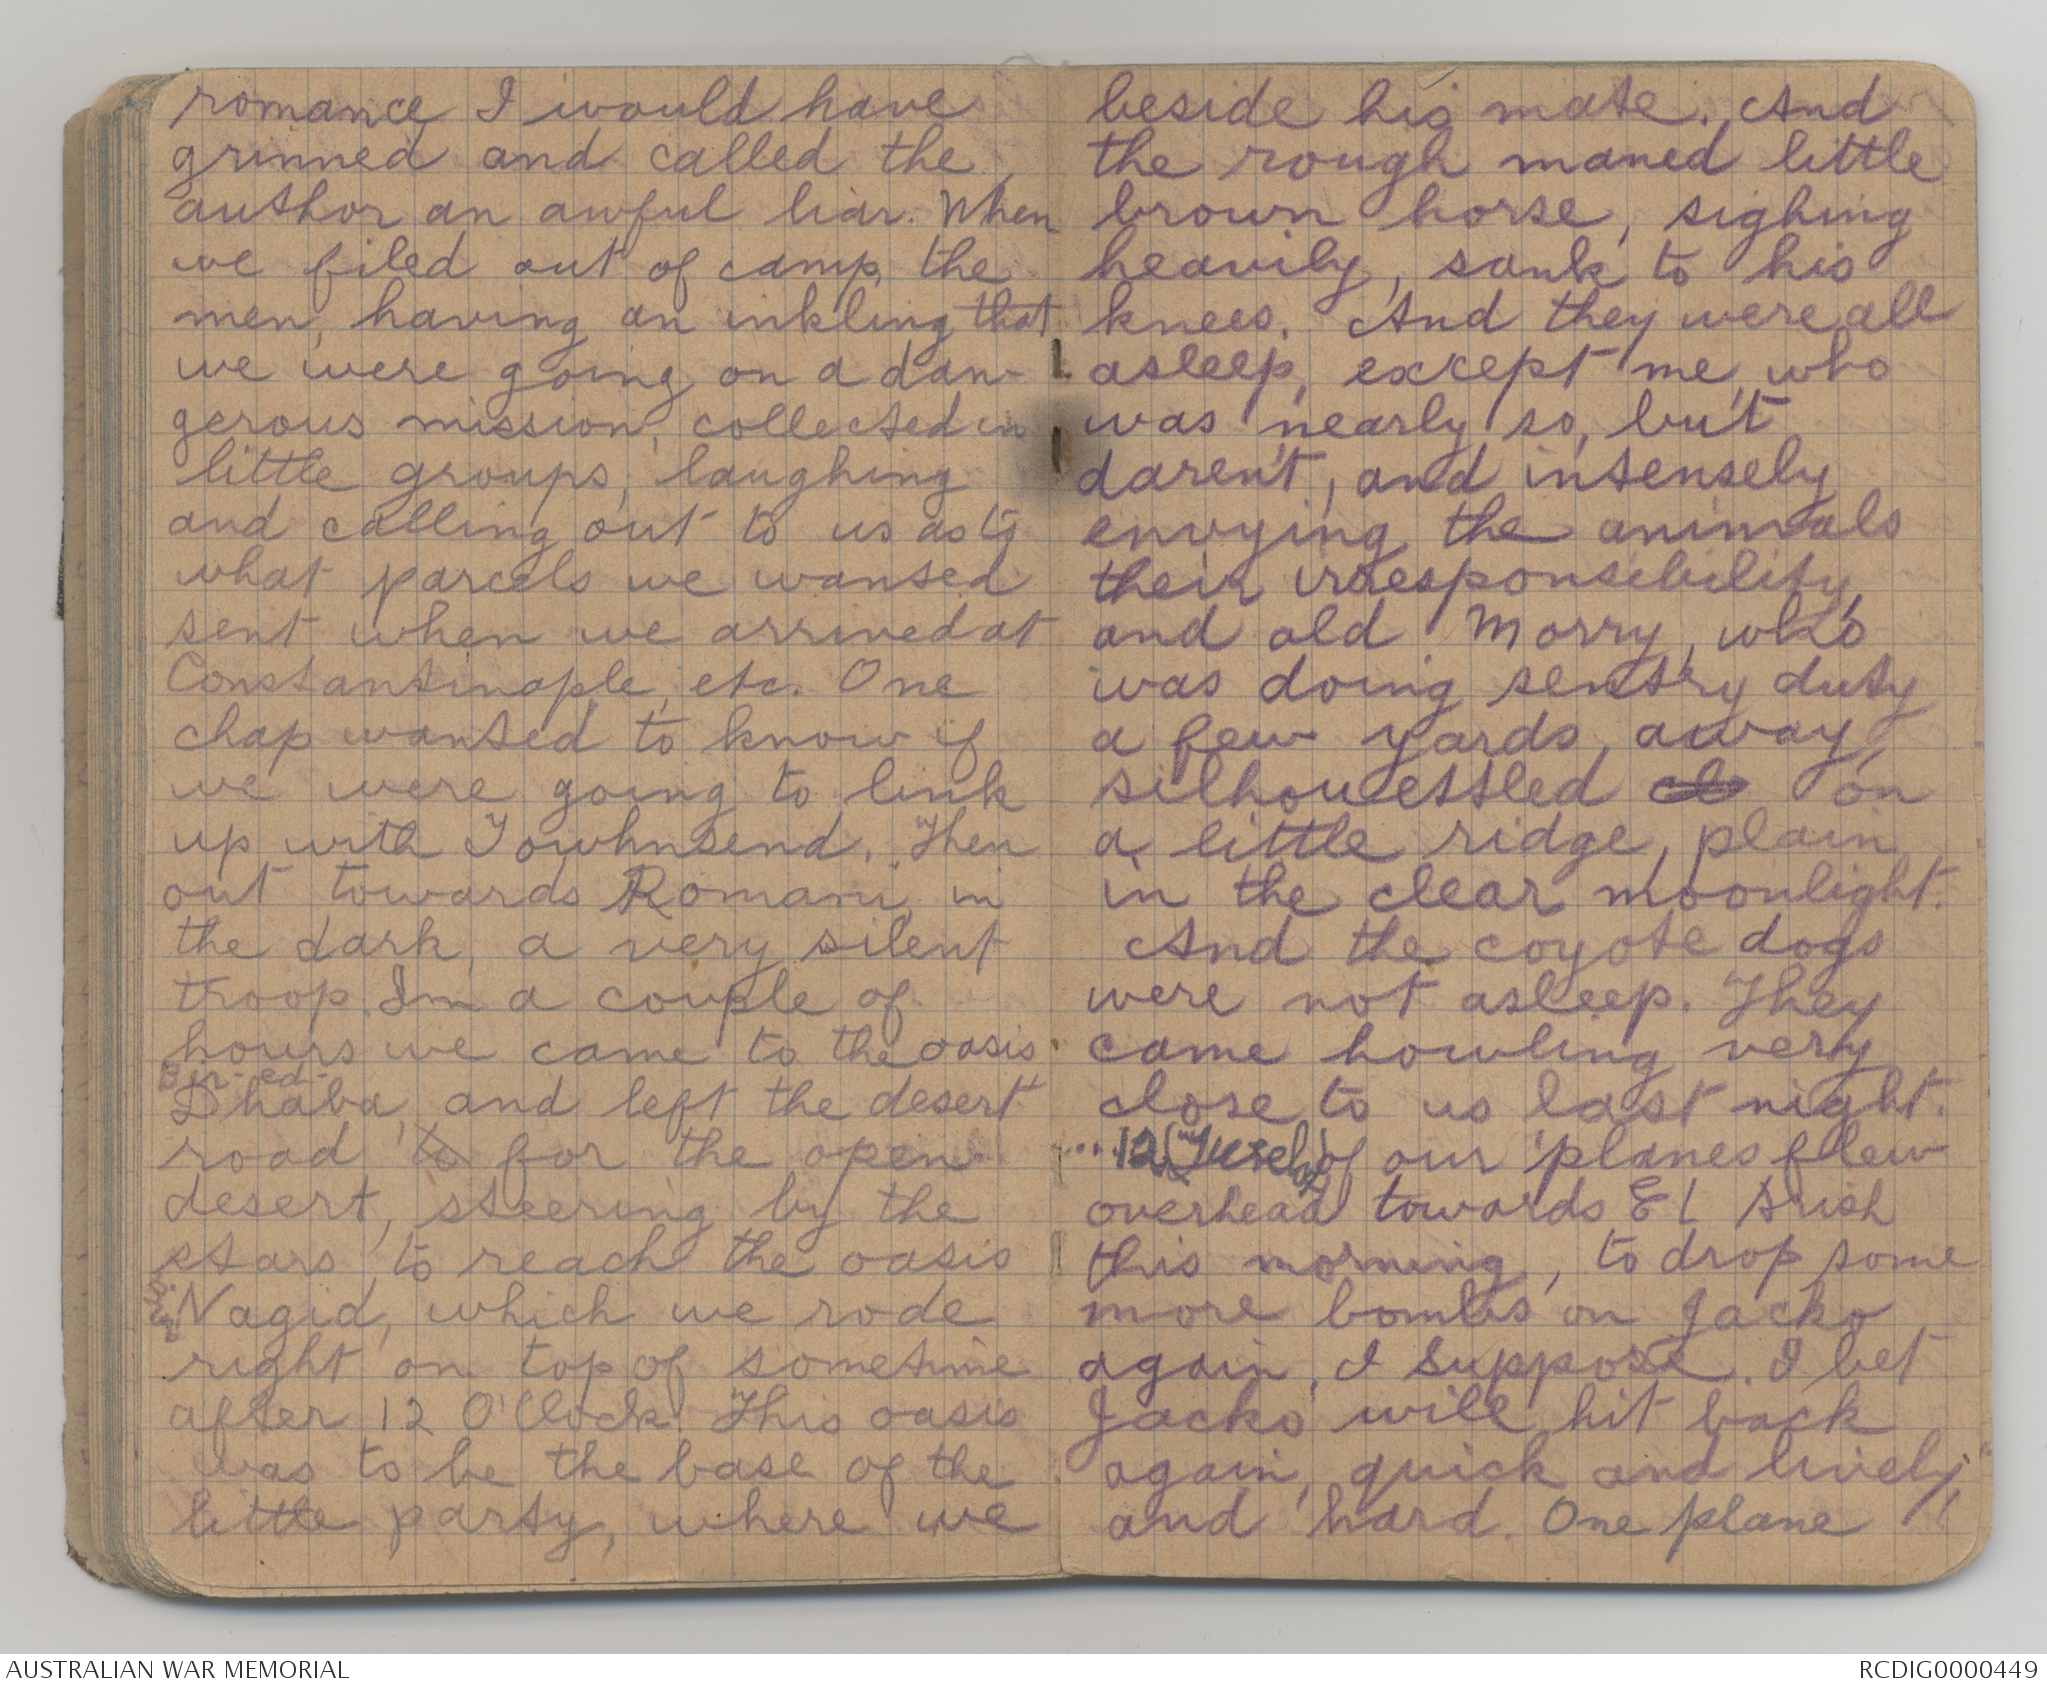 romance, I would have
grinned and called the
author an awful liar. When
we filed out of camp, the
men, having an inkling that
we were going on a dan-
gerous mission, collected in
little groups, laughing
and calling out to us as to
what parcels we wanted
sent when we arrived at
Constantinople, etc. One
chap wanted to know if
we were going to link
up with Towhnsend. Then
out towards Romani, in
the dark, a very silent
troop. In a couple of
hours we came to the oasis
Bir-ed-
Dhaba, and left the desert
road to for the open
desert, steering by the
stars, to reach the oasis
Nagid, which we rode
right on top of sometime
after 12 O'Clock. This oasis
was to be the base of the
little party, where we
beside his mate. And
the rough maned little
brown horse, sighing
heavily, sank to his
knees. And they were all
asleep, except me, who
was nearly so, but
daren't, and intensely
envying the animals
their irresponsibility,
and old Morry, who
was doing sentry duty
a few yards away,
silhouettled on
a little ridge, plain
in the clear moonlight.
And the coyote dogs
were not asleep. They
came howling very
close to us last night.
....12 (Twelve) of our planes flew
overhead towards El Arish
this morning, to drop some
more bombs on Jacko
again, I suppose. I bet
Jacko will hit back
again, quick and lively,
and hard. One plane
AUSTRALIAN WAR MEMORIAL
RCDIG0000449